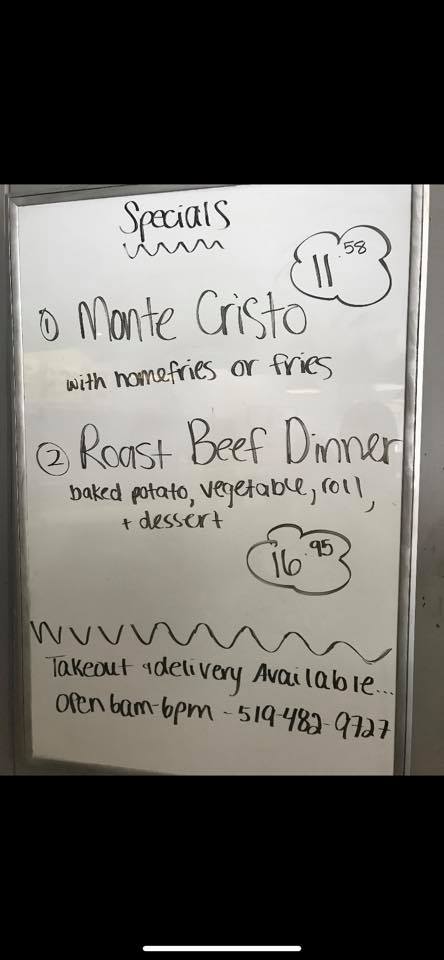 Specials
11.58
① Monte Cristo
with homefries or fries
② Roast Beef Dinner
baked potato, vegetable, roll,
+ dessert
16.95
Takeout + delivery Available...
Open 6am-6pm - 519-482-9727